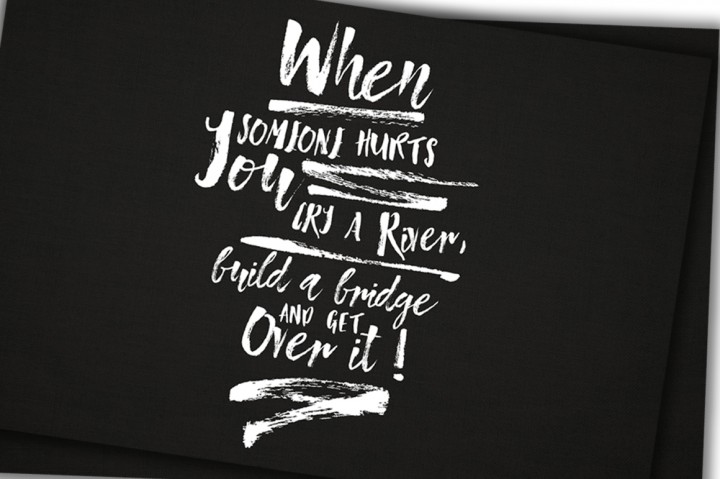 When
SOMEONE HURTS
You
CRY A River,
build a bridge
AND GET
Over it!